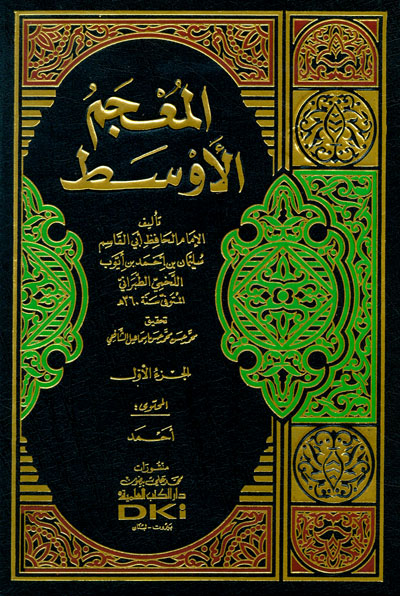 المُعْجَمُ
الأَوْسَط
تأليف
الإمام الحافظ أبي القاسم
سليمان بن أحمد بن أيوب
اللخمي الطبراني
المتوفى سنة ٣٦٠هـ
تحقيق
محمد حسن محمد حسن إسماعيل الشافعي
الجزء الأول
المحتوى:
أحمد
منشورات
محمد علي بيضون
دار الكتب العلمية
DKi
بيروت - لبنان